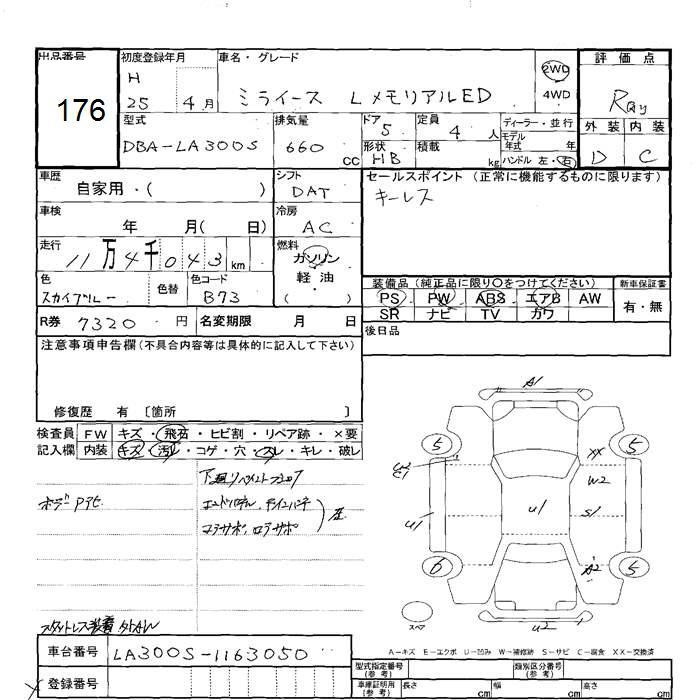 出品番号 初度登録年月 車名・グレード 評価点
176
H 25 4月 ミライース LメモリアルED 2WD 4WD
型式 排気量 ドア 5 定員 4人 ディーラー・並行
DBA-LA300S 660 cc 形状 HB 積載 kg モデル年式 年 ハンドル 左・右
外装 内装
D C
車歴 自家用・( ) シフト DAT
セールスポイント (正常に機能するものに限ります)
キーレス
車検 年 月( 日) 冷房 AC
走行 11万4千043km 燃料 ガソリン 軽油 ( )
色 スカイブルー 色替 色コード B73
装備品(純正品に限り○をつけてください) 新車保証書
PS PW ABS エアB AW 有・無
SR ナビ TV カワ
R券 7320円 名変期限 月 日
後日品
注意事項申告欄(不具合内容等は具体的に記入して下さい)
修復歴 有 [箇所 ]
検査員 FW キズ・飛石・ヒビ割・リペア跡・×要
記入欄 内装 キズ・汚レ・コゲ・穴・スレ・キレ・破レ
左
A1
5 5
XX
W2
U1 U1 S1
6 A2 5
スペア U2
A-キズ E-エクボ U-凹み W-補修跡 S-サビ C-腐食 XX-交換済
車台番号 LA300S-1163050
登録番号
型式指定番号(参考) 類別区分番号(参考)
車庫証明用(参考) 長さ cm 幅 cm 高さ cm